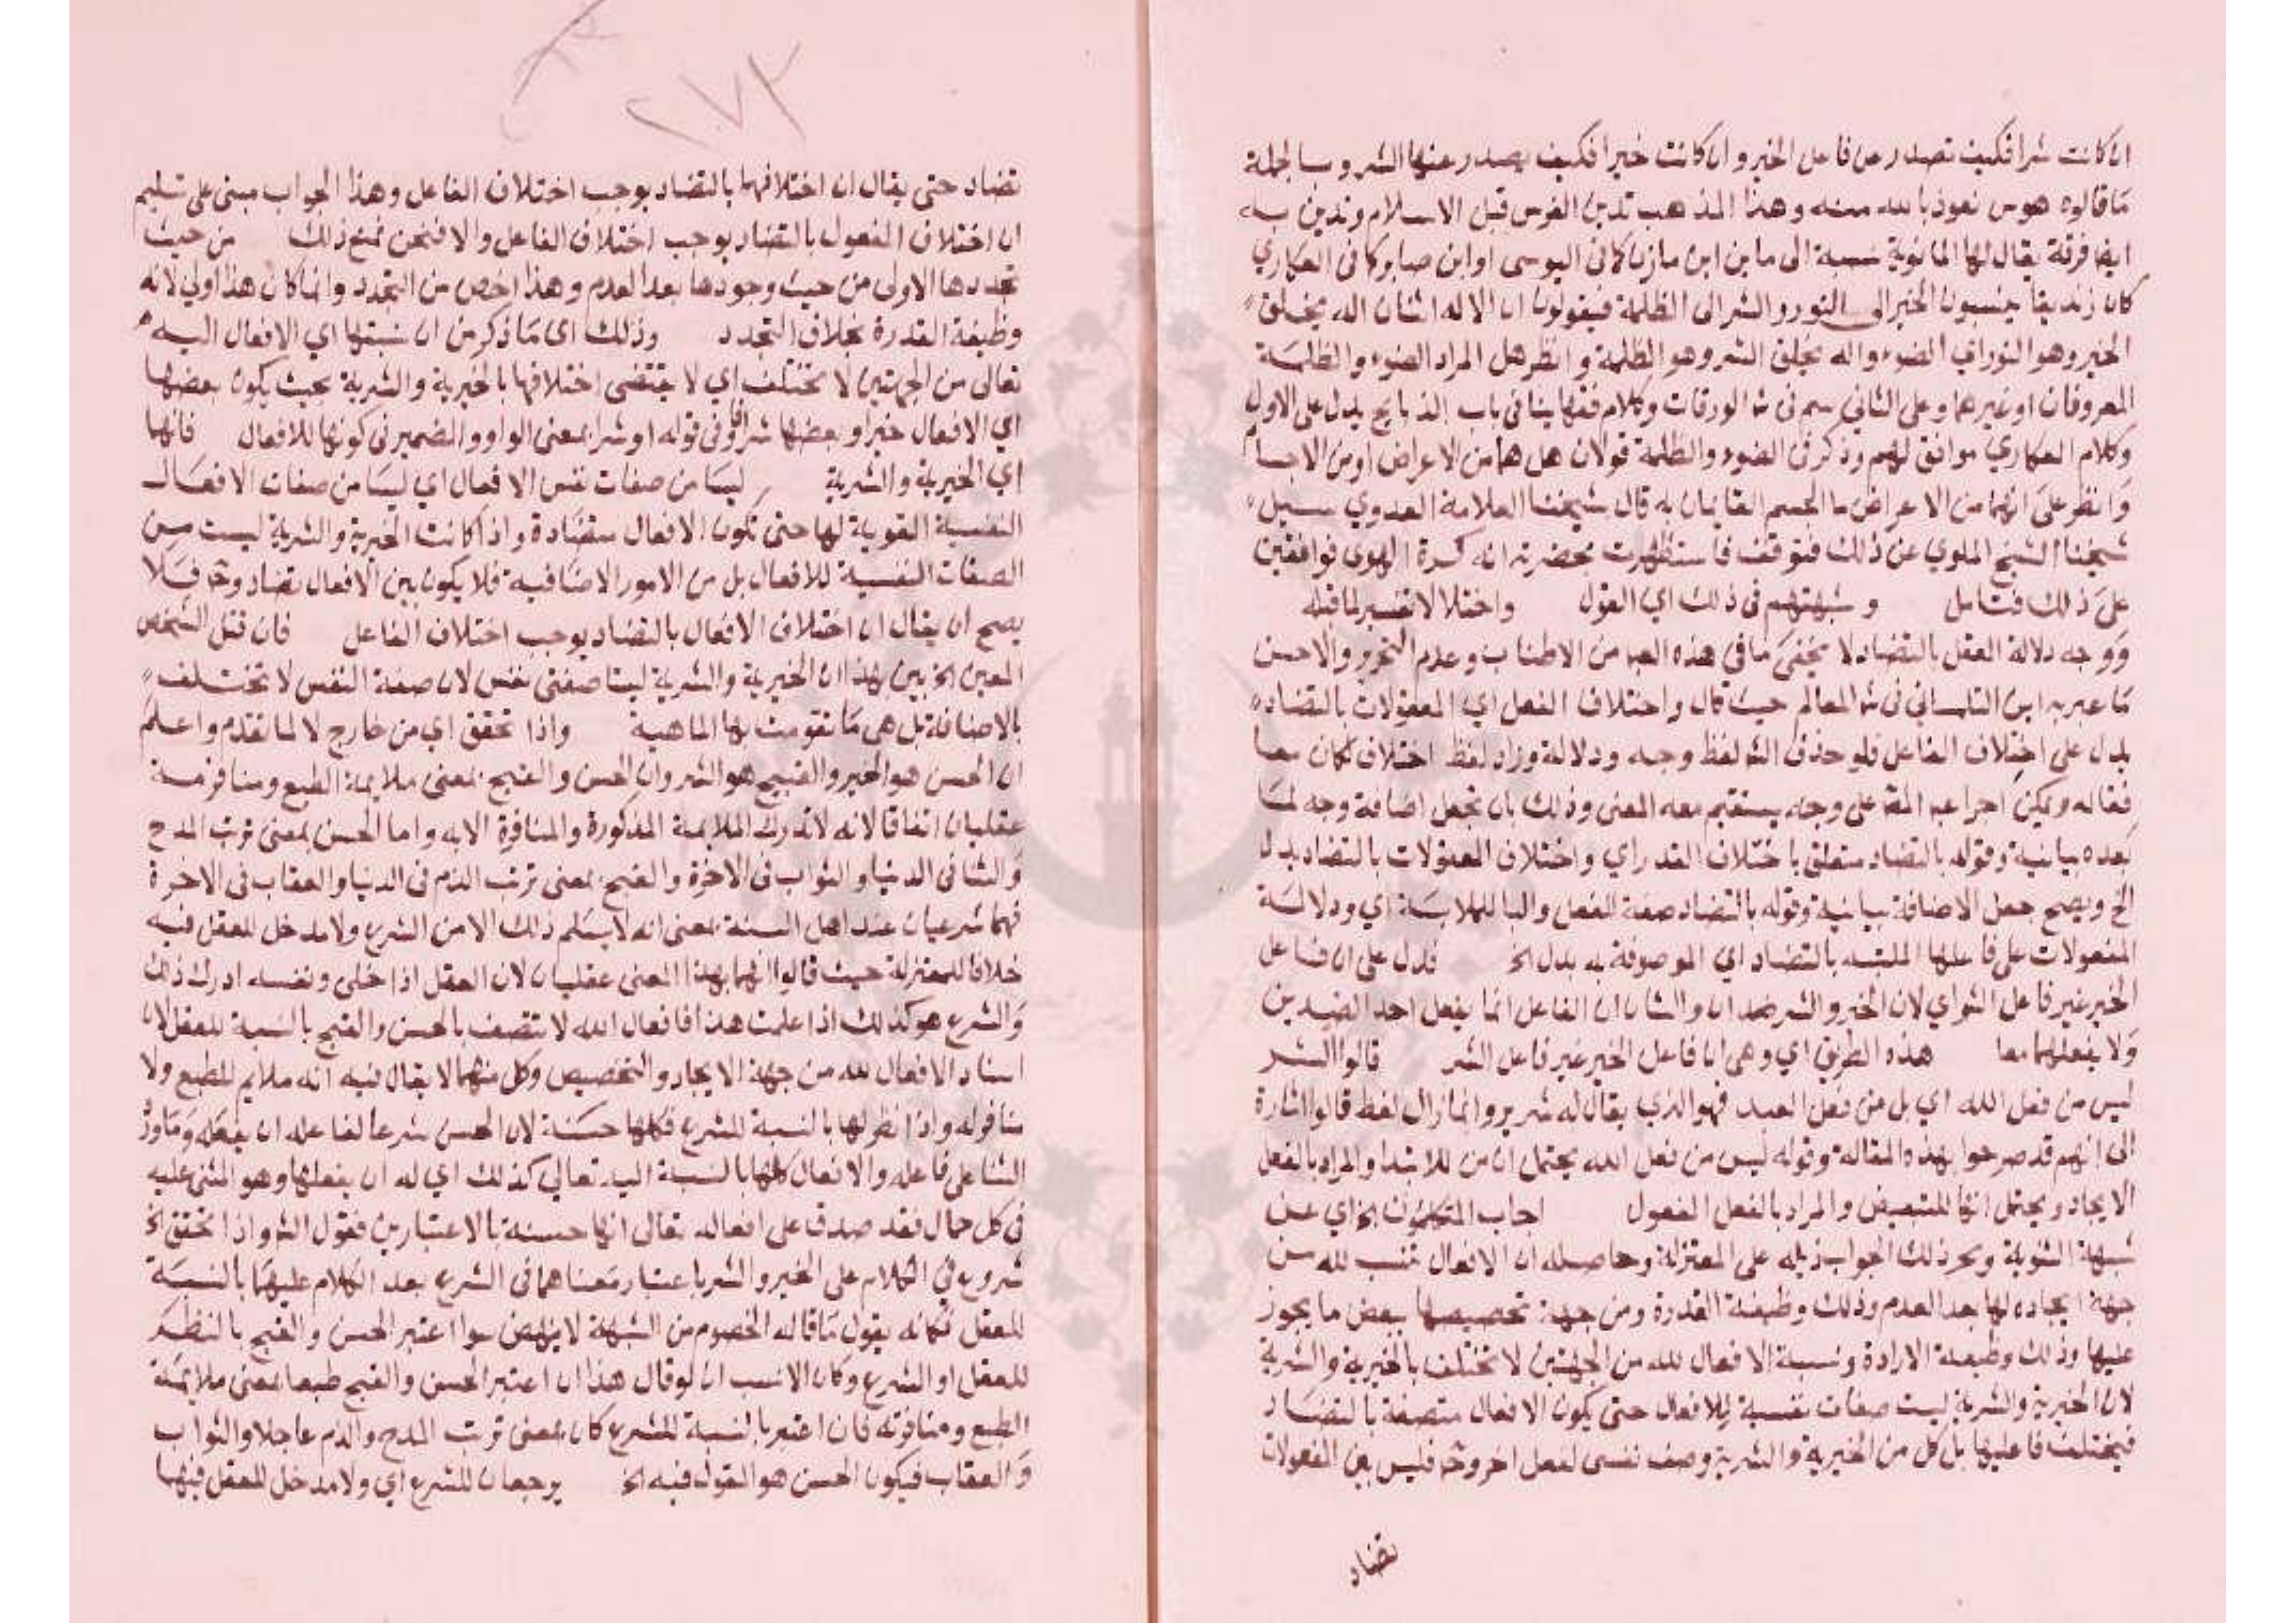 ان كانت شرا فكيف تصدر عن فاعل الخير وان كانت خيرا فكيف يصدر عنها الشر وبالجملة
ما قالوه هوس نعوذ بالله منه وهذا المذهب تدين الفرس قبل الاسلام وتدين به
ايضا فرقة يقال لها المانوية نسبة الى ماين ابن مازيا كما في اليوسى او ابن صابر كما فى العكاري
كان زنديقا ينسبون الخير الى النور والشر الى الظلمة فيقولون ان الاله اثنان اله يخلق
الخير وهو النور اي الضوء واله يخلق الشر وهو الظلمة وانظر هل المراد الضوء والظلمة
المعروفان او غيرهما وعلى الثاني سم فى ش الورقات وكلام فقهاينا فى باب الذبايح يدل على الاول
وكلام العكاري موافق لهم وذكر فى الضوء والظلمة قولان هل هما من الاعراض او من الاجسام
وانظر على انهما من الاعراض ما الجسم القايمان به قال شيخنا العلامة العدوي سيل
شيخنا الشيخ الملوي عن ذلك فتوقف فاستظهرت بحضرته انه كرة الهوى فوافقني
على ذلك فتامل وشبهتهم فى ذلك اي القول واختلالا تفسير لما قبله
ووجه دلالة العقل بالتضاد لا يخفى ما في هذه العبا من الاطناب وعدم التحرير والاحسن
ما عبر به ابن التلمسانى فى ش المعالم حيث قال واختلاف الفعل اي المفعولات بالتضاد
يدل على اختلاف الفاعل فلو حذف الش لفظ وجه ودلالة وزاد لفظ اختلاف لكان
فقاله ويمكن اجرا عبا الش على وجه يستقيم معه المعنى وذلك بان تجعل اضافة وجه لما
بعده بيانية وقوله بالتضاد متعلق باختلاف القدر اي واختلاف المفعولات بالتضاد يدل
الخ ويصح جعل الاضافة بيانية وقوله بالتضاد صفة الفعل والبا للملابسة اي ودلالة
المفعولات على فاعلها الملتبسه بالتضاد اي الموصوفة به يدل الخ فدل على ان فاعل
الخير غير فاعل الشر اي لان الخير والشر ضدان والشان ان الفاعل انما يفعل احد الضدين
ولا يفعلهما معا هذه الطريق اي وهي ان فاعل الخير غير فاعل الشر قالوا الشر
ليس من فعل الله اي بل من فعل العبد فهو الذي يقال له شرير وانما زاد لفظ قالوا اشارة
الى انهم قد صرحوا بهذه المقالة وقوله ليس من فعل الله يحتمل ان من للابتدا والمراد بالفعل
الايجاد ويحتمل انها للتبعيض والمراد بالفعل المفعول اجاب المتكلمون الخ اي عن
شبهة الثنوية وبحر ذلك الجواب ذيله على المعتزلة وحاصله ان الافعال تنسب لله من
جهة ايجاده لها بعد العدم وذلك وظيفة القدرة ومن جهة تخصيصها ببعض ما يجوز
عليها وذلك وظيفة الارادة ونسبة الافعال لله من الجهتين لا تختلف بالخيرية والشرية
لان الخيرية والشرية ليست صفات نفسية للافعال حتى يكون الافعال متصفة بالتضاد
فيختلف فاعليها بل كل من الخيرية والشرية وصف نفسى لفعل اخر وح فليس بين المفعولات
تضاد
٢٧٢
تضاد حتى يقال ان اختلافهما بالتضاد يوجب اختلاف الفاعل وهذا الجواب مبنى على تسليم
ان اختلاف المفعول بالتضاد يوجب اختلاف الفاعل والا فنحن نمنع ذلك من حيث
تجددها الاولى من حيث وجودها بعد العدم وهذا اخص من التجدد وانما كان هذا اولى لانه
وظيفة القدرة بخلاف التجدد وذلك اى ما ذكر من ان نسبتها اي الافعال اليه
تعالى من الجهتين لا تختلف اي لا يقتضى اختلافها بالخيرية والشرية بحيث يكون بعضها
اي الافعال خيرا وبعضها شرا فاو فى قوله او شرا بمعنى الواو والضمير فى كونها للافعال فانها
اي الخيرية والشرية ليسا من صفات نفس الافعال اي ليسا من صفات الافعال
النفسية القوية لها حتى تكون الافعال متضادة واذا كانت الخيرية والشرية ليست من
الصفات النفسية للافعال بل من الامور الاضافية فلا يكون بين الافعال تضاد وح فلا
يصح ان يقال ان اختلاف الافعال بالتضاد يوجب اختلاف الفاعل فان قتل الشخص
المعين الخ بين بهذا ان الخيرية والشرية ليستا صفتى نفس لان صفة النفس لا تختلف
بالاضافة بل هى ما تقومت بها الماهية واذا تحقق اي من خارج لا لما تقدم واعلم
ان الحسن هو الخير والقبيح هو الشر وان الحسن والقبح بمعنى ملايمة الطبع ومنافرته
عقليان اتفاقا لانه لا تدرك الملايمة المذكورة والمنافرة الا به واما الحسن بمعنى ترتب المدح
والثنا فى الدنيا والثواب فى الاخرة والقبح بمعنى ترتب الذم فى الدنيا والعقاب فى الاخرة
فهما شرعيان عند اهل السنة بمعنى انه لا يعلم ذلك الا من الشرع ولا مدخل للعقل فيه
خلافا للمعتزلة حيث قالوا انهما بهذا المعنى عقليان لان العقل اذا خلى ونفسه ادرك ذلك
والشرع هو كذلك اذا علمت هذا فافعال الله لا تتصف بالحسن والقبح بالنسبة للعقل لان
اسناد الافعال لله من جهة الايجاد والتخصيص وكل منهما لا يقال فيه انه ملايم للطبع ولا
منافر له واذا نظر لها بالنسبة للشرع فكلها حسنة لان الحسن شرعا لفاعله ان يفعله وما ورد
الثنا على فاعله والافعال كلها بالنسبة اليه تعالى كذلك اي له ان يفعلها وهو المثنى عليه
فى كل حال فقد صدق على افعاله تعالى انها حسنة بالاعتبارين فقول الش واذا تحقق الخ
شروع في الكلام على الخير والشر باعتبار معناهما فى الشرع بعد الكلام عليهما بالنسبة
للعقل فكانه يقول ما قاله الخصوم من الشبهة لا ينهض سوا اعتبر الحسن والقبح بالنظر
للعقل او الشرع وكان الانسب ان لو قال هذا ان اعتبر الحسن والقبح طبعا بمعنى ملايمة
الطبع ومنافرته فان اعتبر بالنسبة للشرع كان بمعنى ترتب المدح والذم عاجلا والثواب
والعقاب فيكون الحسن هو المقول فيه الخ يرجعان للشرع اي ولا مدخل للعقل فيها